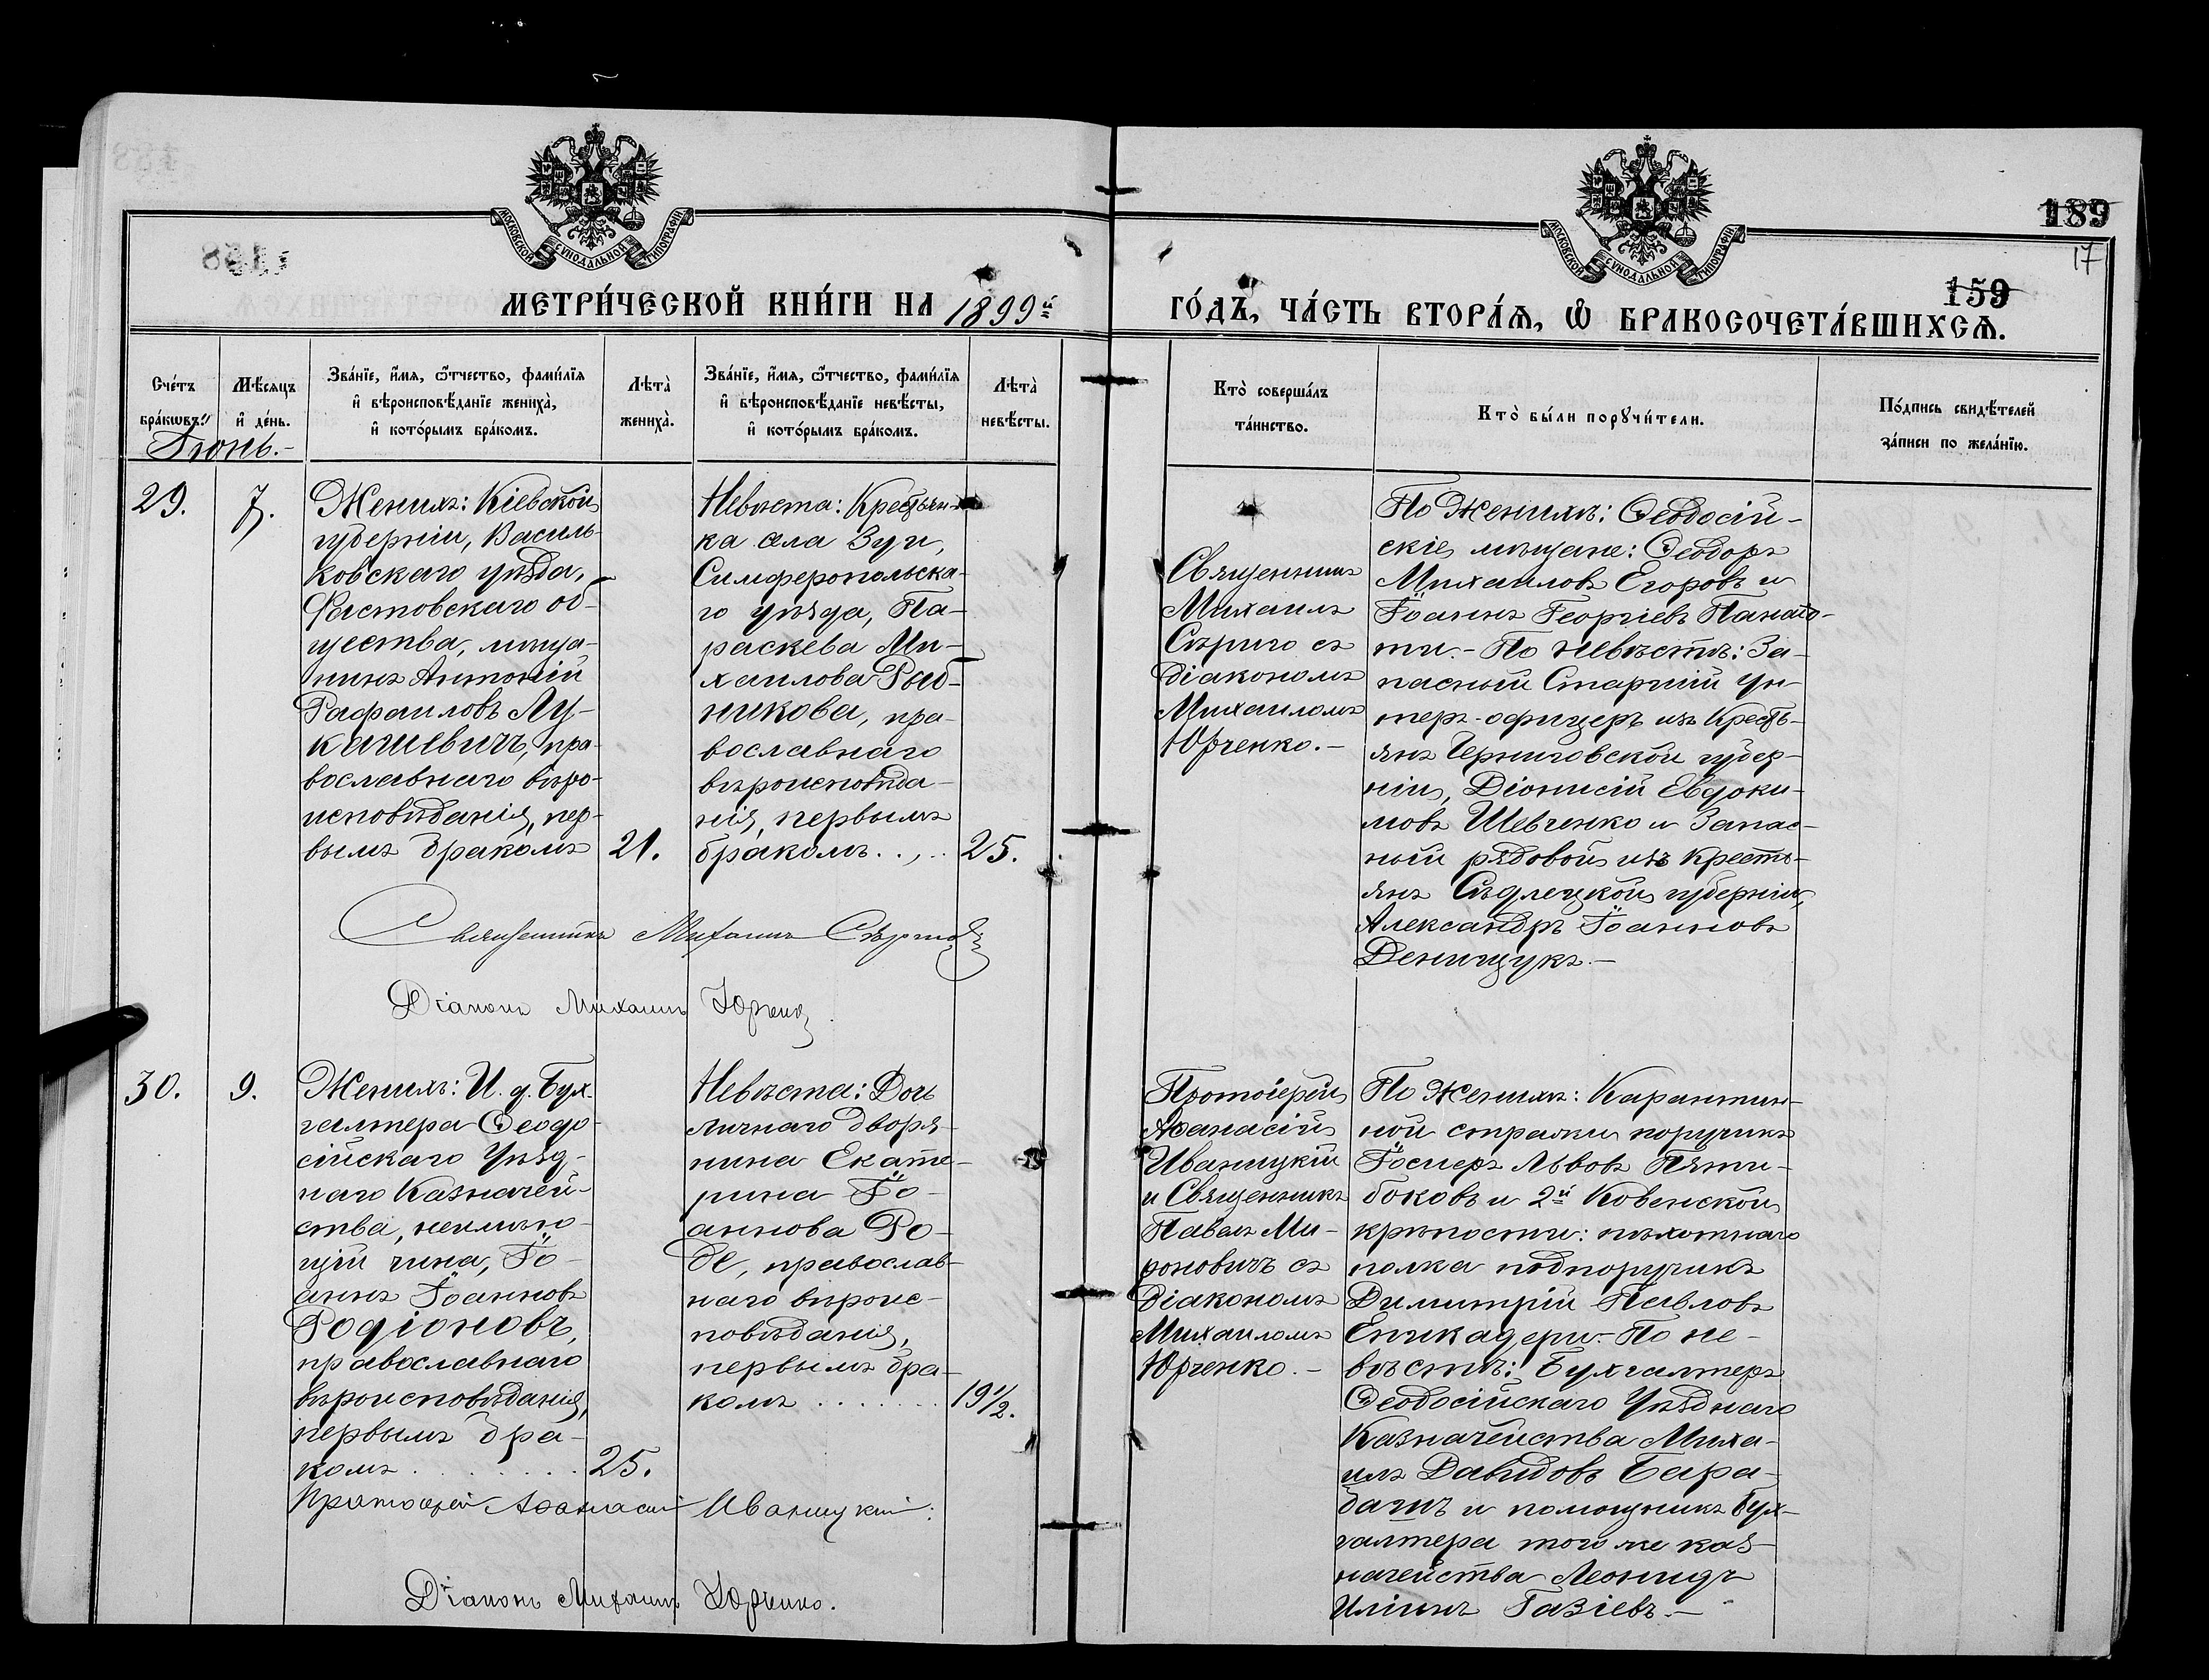 189
17
159
МОСКОВСКОЙ СѴНОДАЛЬНОЙ ТИПОГРАФІИ
МОСКОВСКОЙ СѴНОДАЛЬНОЙ ТИПОГРАФІИ
МЕТРИ́ЧЕСКОЙ КНИ́ГИ НА 1899й ГО́ДЪ, ЧА́СТЬ ВТОРА́Ѧ, Ѡ҆ БРАКОСОЧЕТА́ВШИХСѦ.
Сче́тъ
бра́кѡвъ.
Мѣ́сяцъ
и҆ де́нь.
Зва́нїе, и҆́мѧ, ѻ҆́тчество, фами́лїѧ
и҆ вѣроисповѣ́данїе жениха̀,
и҆ кото́рымъ бра́комъ.
Лѣта̀
жениха̀.
Зва́нїе, и҆́мѧ, ѻ҆́тчество, фами́лїѧ
и҆ вѣроисповѣ́данїе невѣ́сты,
и҆ кото́рымъ бра́комъ.
Лѣта̀
невѣ́сты.
Кто̀ соверша́лъ
та́инство.
Кто̀ бы́ли порꙋчи́тели.
По́дпись свидѣ́телей
за́писи по жела́нїю.
Іюнь.-
29.
7.
Женихъ: Кіевской
губерніи, Василь-
ковскаго уѣзда,
Фастовскаго об-
щества, мѣща-
нинъ Антоній
Рафаиловъ Лу-
кашевичъ, пра-
вославнаго вѣро-
исповѣданія, пер-
вымъ бракомъ
21.
Невѣста: Крестьян-
ка села Зуи,
Симферопольска-
го уѣзда, Па-
раскева Ми-
хаилова Рыб-
никова, пра-
вославнаго
вѣроисповѣда-
нія, первымъ
бракомъ . . , . .
25.
Священникъ
Михаилъ
Сѣриго съ
Діакономъ
Михаиломъ
Юрченко.-
По Женихѣ: Ѳеодосій-
скіе мѣщане: Ѳеодоръ
Михаиловъ Егоровъ и
Іоаннъ Георгіевъ Панаіо-
ти.- По невѣстѣ: За-
пасный Старшій ун-
теръ-офицеръ изъ Кресть-
янъ Черниговской губер-
ніи, Діонисій Евдоки-
мовъ Шевченко и Запас-
ный рядовой изъ крестъ-
янъ Сѣдлецкой губерніи,
Александръ Іоанновъ
Денищукъ.-
Священникъ Михаилъ Сѣриго
Діаконъ Михаилъ Юрченко
30.
9.
Женихъ: И. д. Бух-
галтера Ѳеодо-
сійскаго Уѣзд-
наго Казначей-
ства, неимѣю-
щій чина, Іо-
аннъ Іоанновъ
Родіоновъ,
православнаго
вѣроисповѣданія,
первымъ бра-
комъ . . . . . . .
25.
Невѣста: Дочь
личнаго дворя-
нина Екате-
рина Іо-
аннова Ро-
де, православ-
наго вѣроис-
повѣданія,
первымъ бра-
комъ . . . . . . .
19½.
Протоіерей
Аѳанасій
Иваницкій
и Священникъ
Павелъ Ми-
роновичъ съ
Діакономъ
Михаиломъ
Юрченко.-
По Женихѣ: Карантин-
ной стражи поручикъ
Іосифъ Львовъ Пяти-
боковъ и 2й Ковенской
крѣпости: пѣхотнаго
полка подпоручикъ
Димитрій Павловъ
По не-
вѣстѣ: Бухгалтеръ
Ѳеодосійскаго Уѣзднаго
Казначейства Миха-
илъ Давидовъ Бара-
башъ и помощникъ Бух-
галтера того же каз-
начейства Леонидъ
Иліинъ Газіевъ.-
Протоіерей Аѳанасій Иваницкій.
Діаконъ Михаилъ Юрченко.